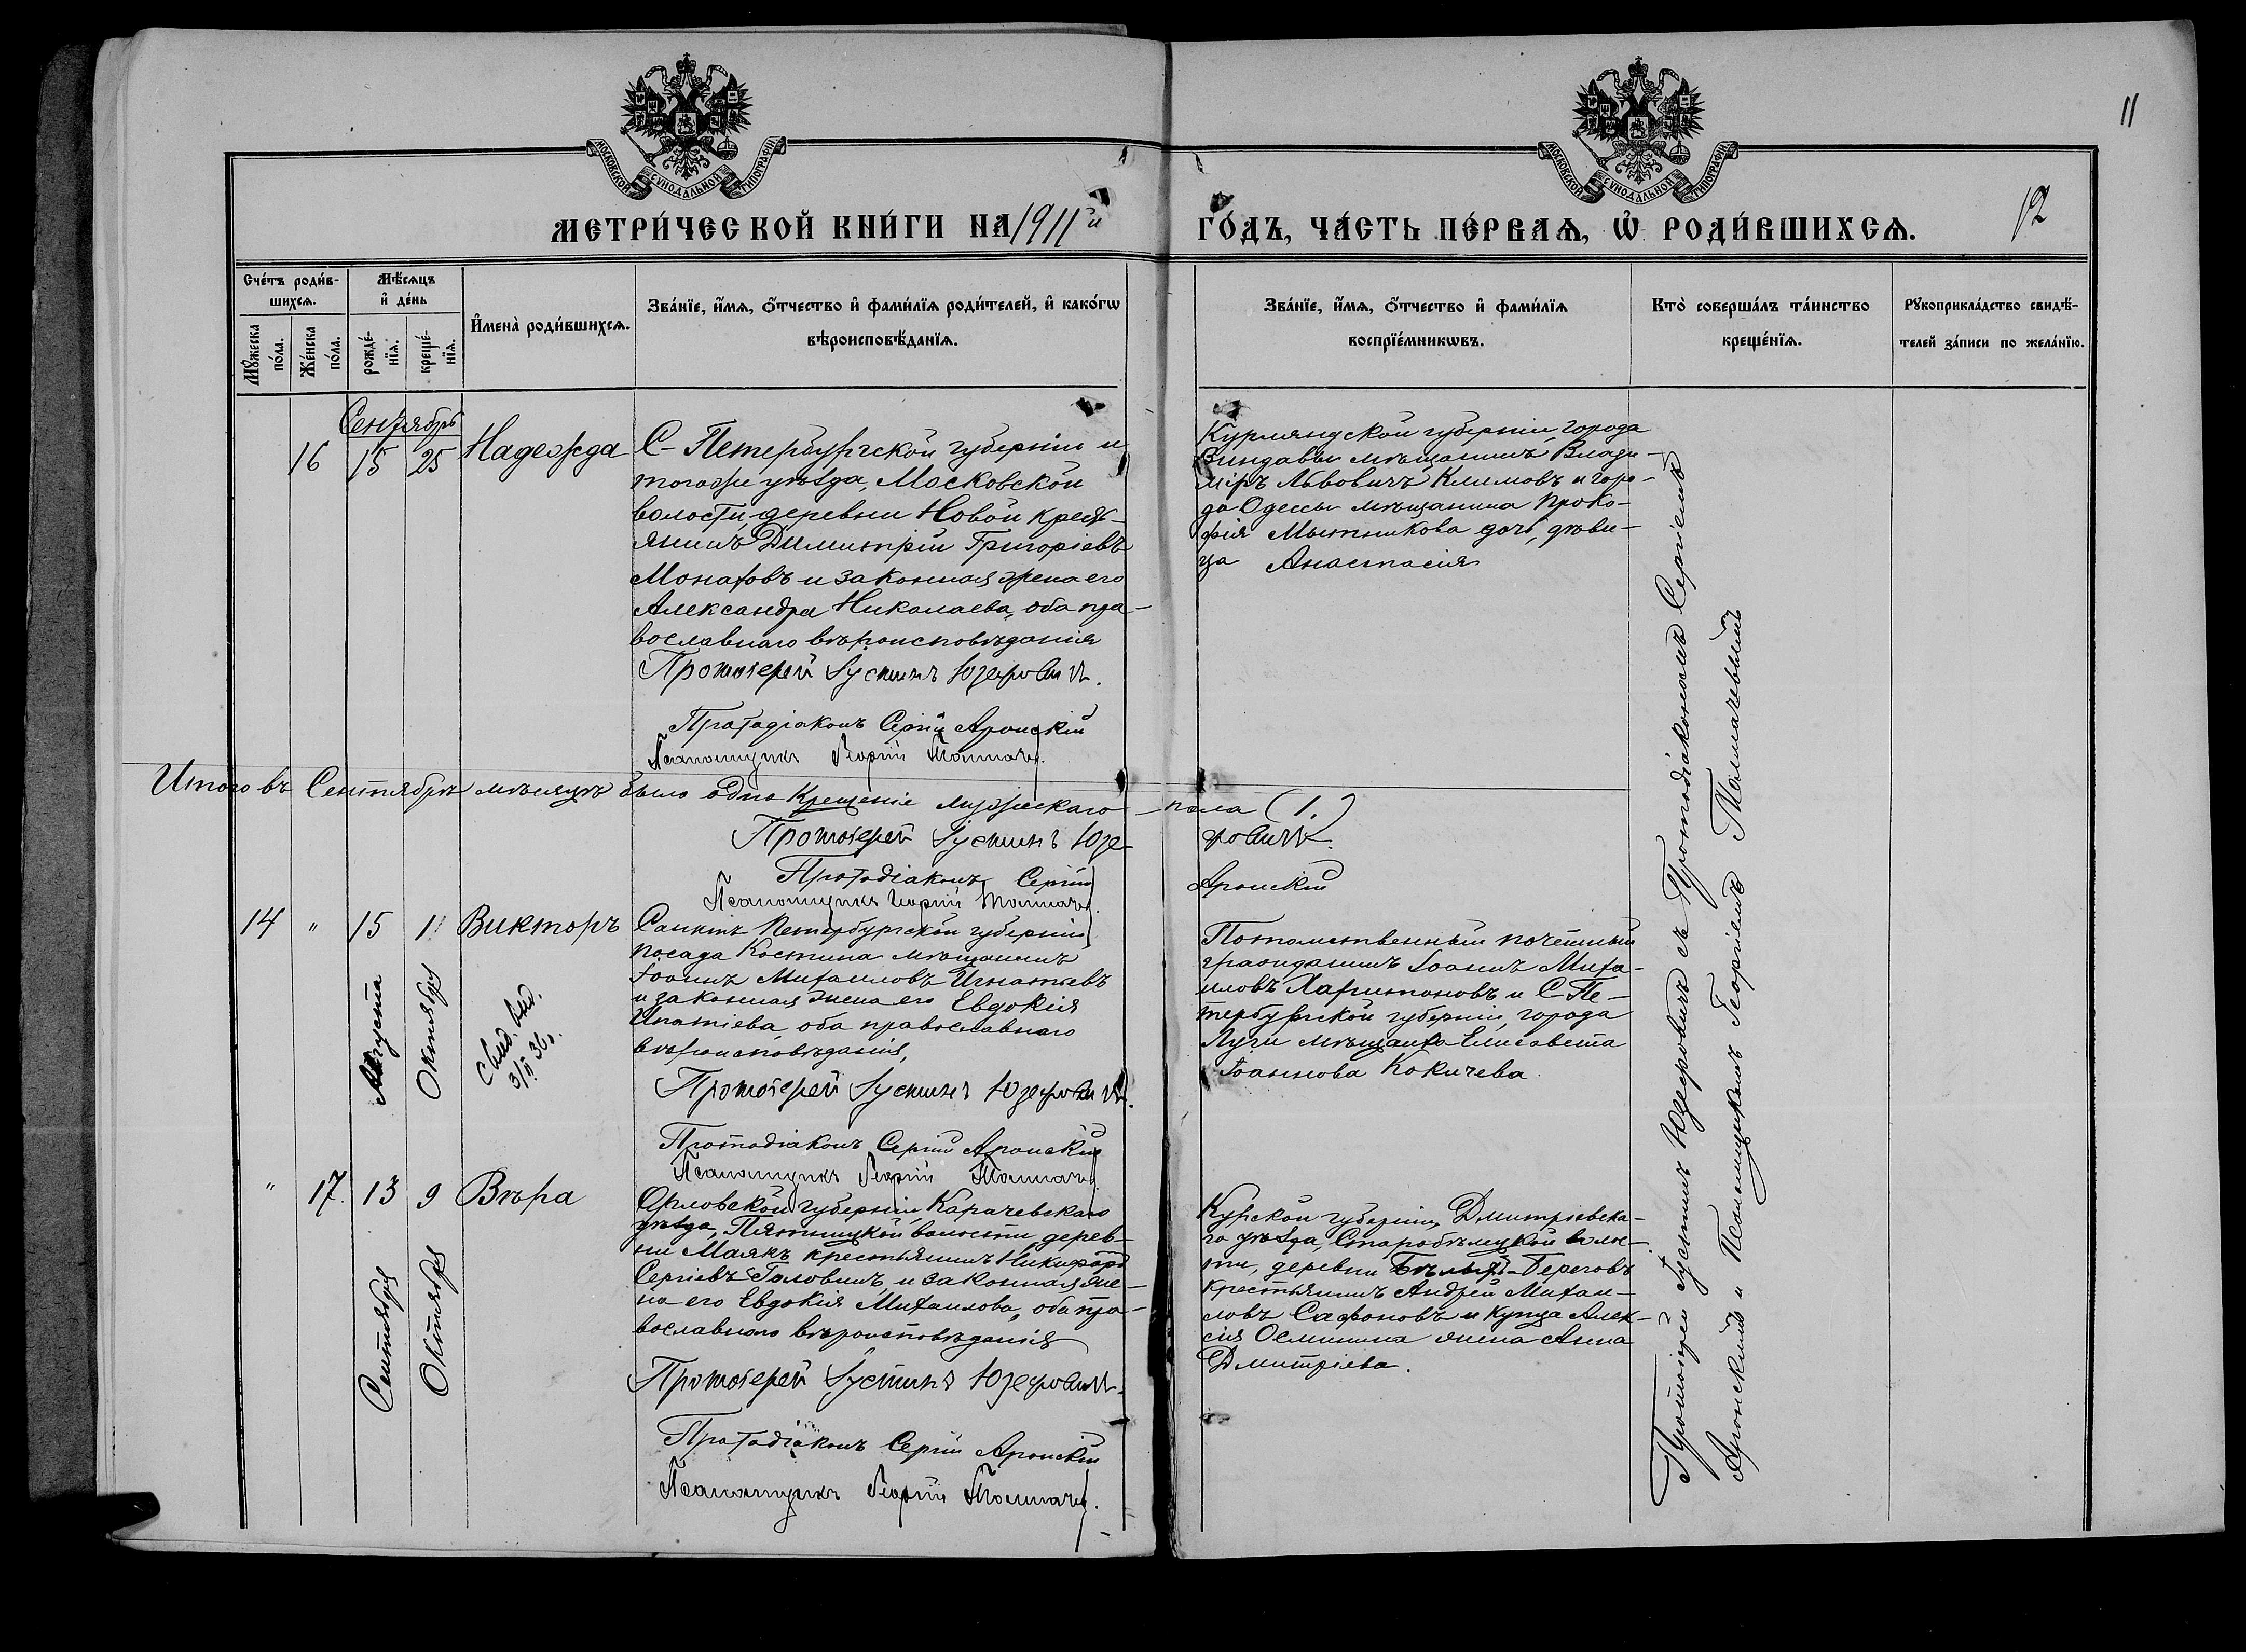 11
МОСКОВСКОЙ СѴНОДАЛЬНОЙ ТИПОГРАФІИ
МОСКОВСКОЙ СѴНОДАЛЬНОЙ ТИПОГРАФІИ
МЕТРИ́ЧЕСКОЙ КНИ́ГИ НА 1911й
ГО́ДЪ, ЧА́СТЬ ПЕ́РВАѦ, Ѡ҆ РОДИ́ВШИХСѦ.
12
Сче́тъ роди́в-
шихсѧ.
Мꙋ́жеска по́ла.
Же́нска по́ла.
Мѣ́сѧцъ
и҆ де́нь
рожде́-нїѧ.
креще́-нїѧ.
И҆мена̀ роди́вшихсѧ.
Зва́нїе, и҆́мѧ, ѻ҆́тчество и҆ фами́лїѧ роди́телей, и҆ како́гѡ
вѣроисповѣ́данїѧ.
Зва́нїе, и҆́мѧ, ѻ҆́тчество и҆ фами́лїѧ
воспрїе́мникѡвъ.
Кто̀ соверша́лъ та́инство
креще́нїѧ.
Рꙋкоприкла́дство свидѣ́-
телей за́писи по жела́нїю.
Сентябрь
16 15 25 Надежда
С-Петербургской губерніи и
тогоже уѣзда, Московской
волости, деревни Новой кресть-
янинъ Димитрій Григоріевъ
Монаховъ и законная жена его
Александра Николаева, оба пра-
вославнаго вѣроисповѣданія
Протоіерей Іустинъ Юзефовичъ.
Протодіаконъ Сергій Аронскій
Псаломщикъ Георгій Толмачев.
Курляндской губерніи, города
Виндавы мѣщанинъ Влади-
міръ Львовичъ Климовъ и горо-
да Одессы мѣщанина Проко-
фія Мытникова дочь, дѣви-
ца Анастасія
Итого въ Сентябрѣ мѣсяцѣ было одно Крещеніе мужескаго пола (1.)
Протоіерей Іустинъ Юзефовичъ.
Протодіаконъ Сергій Аронскій
Псаломщикъ Георгій Толмачев.
14 " 15 1 Викторъ
Августа
Октября
Свид. выд.
3/II 36
Санктъ Петербургской губерніи,
посада Костина мѣщанинъ
Іоаннъ Михаиловъ Игнатьевъ
и законная жена его Евдокія
Ипатіева, оба православнаго
вѣроисповѣданія,
Протоіерей Іустинъ Юзефовичъ.
Протодіаконъ Сергій Аронскій
Псаломщикъ Георгій Толмачев.
Потомственный почетный
гражданинъ Іоаннъ Миха-
иловъ Харитоновъ и С-Пе-
тербургской губерніи, города
Луги мѣщанка Елисавета
Іоаннова Кокичева.
" 17. 13 9 Вѣра
Сентября
Октября
Орловской губерніи, Карачевскаго
уѣзда, Пятницкой волости, дерев-
ни Маякъ крестьянинъ Никифоръ
Сергіевъ Головинъ и законная же-
на его Евдокія Михаилова, оба пра-
вославнаго вѣроисповѣданія
Протоіерей Іустинъ Юзефовичъ.
Протодіаконъ Сергій Аронскій
Псаломщикъ Георгій Толмачев.
Курской губерніи, Дмитріевска-
го уѣзда, Старобѣлицкой волос-
ти, деревни Бѣлыхъ-Береговъ
крестьянинъ Андрей Михаи-
ловъ Сафоновъ и купца Алек-
сія Осминина жена Анна
Дмитріева.
Протоіерей Іустинъ Юзефовичъ съ Протодіакономъ Сергіемъ
Аронскимъ и Псаломщикомъ Георгіемъ Толмачевымъ